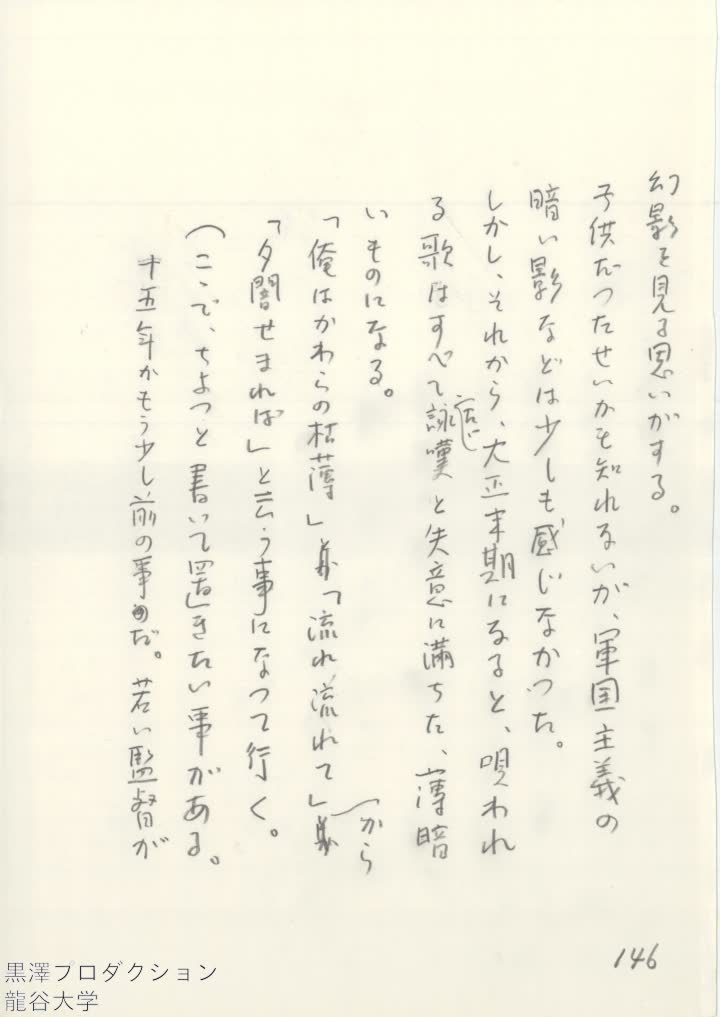 幻影を見る思いがする。
子供だつたせいかも知れないが、軍国主義の
暗い影などは少しも感じなかつた。
しかし、それから、大正末期になると、唄われ
る歌はすべて詠嘆と失意に満ちた、薄暗
いものになる。
「俺はかわらの枯薄」「流れ流れて」から
「夕闇せまれば」と云う事になつて行く。
(ここで、ちよつと書いて置きたい事がある。
十五年かもう少し前の事だ。若い監督が
146
黒澤プロダクション
龍谷大学